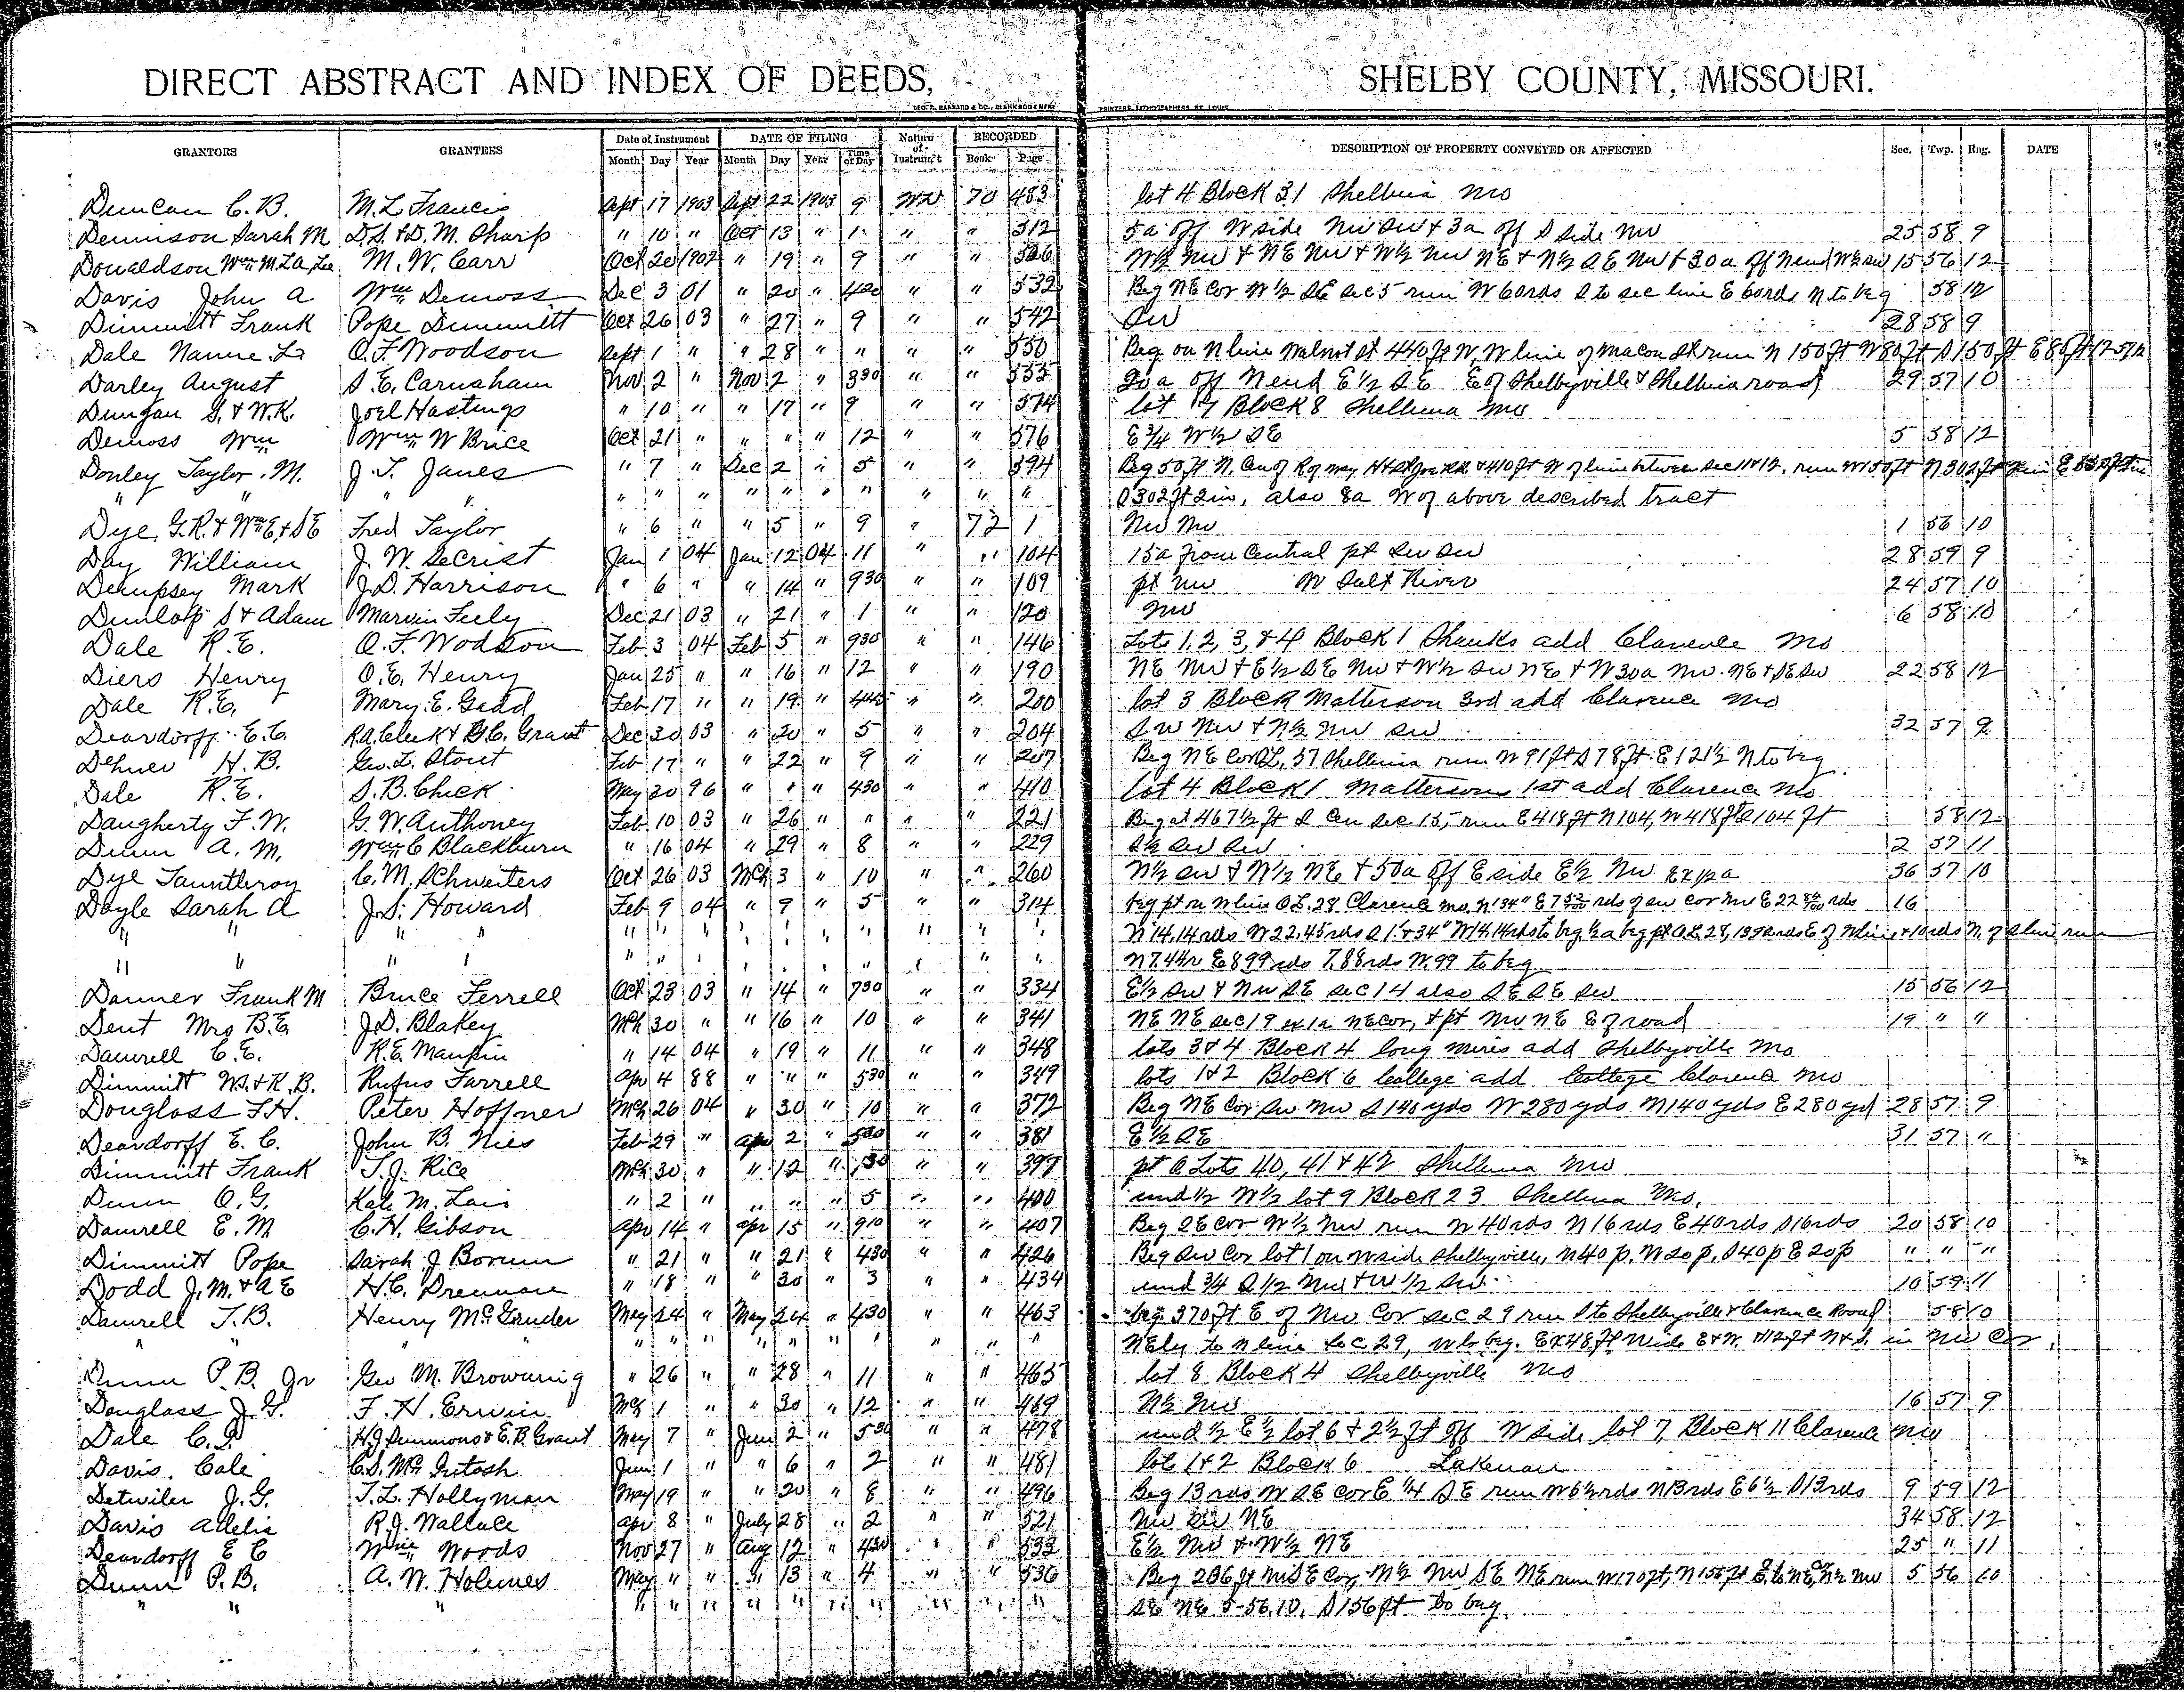 DIRECT ABSTRACT AND INDEX OF DEEDS, SHELBY COUNTY, MISSOURI.
GEO. D. BARNARD & CO., BLANK BOOK MFRS PRINTERS, LITHOGRAPHERS, ST. LOUIS.
GRANTORS GRANTEES Date of Instrument DATE OF FILING Nature of Instrum't RECORDED DESCRIPTION OF PROPERTY CONVEYED OR AFFECTED Sec. Twp. Rng. DATE
Month Day Year Month Day Year Time of Day Book Page
Duncan C. B. M. L. Francis Sept 17 1903 Sept 22 1903 9 WD 70 483 lot 4 Block 31 Shelbina Mo
Dennison Sarah M D.S. & D. M. Sharp " 10 " Oct 13 " 1 " " 512 5a off W side NW SW & 3a off S side NW 25 58 9
Donaldson Wm M. M. W. Carr Oct 20 1902 " 19 " 9 " " 526 W½ NW & NE NW & W½ NW NE & N½ SE NW & 30a off N end W½ SW 15 56 12
Davis John A Wm Demoss Dec 3 01 " 20 " 420 " " 532 Beg NE Cor W½ SE sec 5 run W 60rds S to sec line E 60rds N to beg 58 12
Dimmitt Frank Pope Dimmitt Oct 26 03 " 27 " 9 " " 542 SW 28 58 9
Dale Nannie L. O. F. Woodson Sept 1 " " 28 " " " " 550 Beg on N line Walnut St 440 ft W, W line of Macon St run N 150 ft W 80 ft S 150 ft E 80 ft
Darley August S. E. Carnaham Nov 2 " Nov 2 " 330 " " 555 20a off N end E½ SE E of Shelbyville & Shelbina road 29 57 10
Dungan S. & W.K. Joel Hastings " 10 " " 17 " 9 " " 574 lot 7 Block 8 Shelbina Mo
Demoss Wm Wm W Brice Oct 21 " " " " 12 " " 576 E ¾ W½ SE 5 58 12
Donley Taylor. M. J. T. Janes " 7 " Dec 2 " 5 " " 594 Beg 50 ft N. Cen of R of way H & St Joe RR & 410 ft W of line between sec 11 & 12, run W 150 ft N 302 ft
" " " " " " " " " " " " " " S 302 ft 2in, also 8a W of above described tract
Dye, G.R. & Wm E, & S E Fred Taylor " 6 " " 5 " 9 " 72 1 NW NW 1 56 10
Day William J. W. Secrist Jan 1 04 Jan 12 04 11 " " 104 15a from Central pt SW SW 28 59 9
Dempsey Mark J. D. Harrison " 6 " " 14 " 930 " " 109 pt NW W Salt River 24 57 10
Dunlop S & Adam Marvin Feely Dec 21 03 " 21 " 1 " " 120 NW 6 58 10
Dale R. E. O. F. Wodson Feb 3 04 Feb 5 " 930 " " 146 Lots 1, 2, 3, & 4 Block 1 Shanks add Clarence Mo
Diers Henry O. E. Henry Jan 25 " " 16 " 12 " " 190 NE NW & E½ SE NW & W½ SW NE & W 30a NW NE & SE SW 22 58 12
Dale R. E. Mary. E. Gadd Feb 17 " " 19 " 445 " " 200 lot 3 Block Matterson 3rd add Clarence Mo
Deardorff E. C. R.A. Cleek & B.C. Grant Dec 30 03 " 20 " 5 " " 204 SW NW & N½ NW SW 32 57 9
Dehner H. B. Geo. L. Stout Feb 17 " " 22 " 9 " " 207 Beg NE Cor OL, 57 Shelbina run W 91 ft S 78 ft E 121½ N to beg
Dale R. E. S. B. Chick May 20 96 " " " 430 " " 410 lot 4 Block 1 Mattersons 1st add Clarence Mo
Daugherty F. W. G. W. Anthoney Feb 10 03 " 26 " " " " 221 Beg at 467½ ft S Cen sec 15, run E 418 ft N 104, W 418 ft S 104 ft 58 12
Dunn A. M. Wm C Blackburn " 16 04 " 29 " 8 " " 229 S½ SW SW 2 57 11
Dye Fauntleroy C. M. Schweiters Oct 26 03 Mch 3 " 10 " " 260 N½ SW & W½ NE & 50a off E side E½ NW Ex ½a 36 57 10
Doyle Sarah A J. S. Howard Feb 9 04 " 9 " 5 " " 314 beg pt on N line O.L. 28 Clarence Mo. 16
" " " " " " " " " " " " " "
" " " " " " " " " " " " " " N 7.44r E 899 rds 7.88 rds W. 99 to beg
Danner Frank M Bruce Ferrell Oct 23 03 " 14 " 730 " " 334 E½ SW & NW SE sec 14 also SE SE SW 15 56 12
Dent Mrs B.E J. D. Blakey Mch 30 " " 16 " 10 " " 341 NE NE sec 19 ex 1a NE cor, & pt NW NE E of road 19 " "
Damrell C. E. R. E. Maupin " 14 04 " 19 " 11 " " 348 lots 3 & 4 Block 4 long mires add Shelbyville Mo
Dimmitt W.S. & K. B. Rufus Farrell Apr 4 88 " " " 530 " " 349 lots 1 & 2 Block 6 College add College Clarence Mo
Douglass F.H. Peter Hoffner Mch 26 04 " 30 " 10 " " 372 Beg NE Cor SW NW S 140 yds W 280 yds N 140 yds E 280 yd 28 57 9
Deardorff E. C. John B. Nies Feb 29 " Apr 2 " 530 " " 381 E½ SE 31 57 "
Dimmitt Frank T. J. Rice Mch 30 " " 12 " " " 397 pt O Lots 40, 41 & 42 Shelbina Mo
Dunn O. G. Kate M. Lais " 2 " " " " 5 " " 400 und ½ W½ lot 9 Block 23 Shelbina Mo,
Damrell E. M C. H. Gibson Apr 14 " Apr 15 " 910 " " 407 Beg SE cor W½ NW run W 40rds N 16 rds E 40rds S 16rds 20 58 10
Dimmitt Pope Sarah J Borum " 21 " " 21 " 430 " " 426 Beg SW Cor lot 1 on W side Shelbyville, N 40 p. W 20 p, S 40 p E 20 p " " "
Dodd J. M. & A E H. C. Drennan " 18 " " 30 " 3 " " 434 und ¾ S 1/2 NW & W 1/2 SW 10 59 11
Damrell T. B. Henry McGruder May 24 " May 24 " 430 " " 463 beg 370 ft E of NW Cor sec 29 run S to Shelbyville & Clarence Road 58 10
" " " " " " " " " " " " " NEly to N line sec 29, W to beg. Ex 48 ft Wide E & W. & 12 ft N & S. in NW Cor.
Dunn P. B. Jr Geo M. Browning " 26 " " 28 " 11 " " 465 lot 8 Block 4 Shelbyville Mo
Douglass J. G. F. H. Erwin Mch 1 " " 30 " 12 " " 469 N½ NW 16 57 9
Dale C. L. H. J. Simmons & E. B. Grant May 7 " June 2 " 530 " " 478 und ½ E½ lot 6 & 2½ ft off W side lot 7, Block 11 Clarence Mo
Davis. Cale C. S. McIntosh June 1 " " 6 " 2 " " 481 lots 1 & 2 Block 6 Lakenan
Detwiler J. G. T. L. Hollyman May 19 " " 20 " 8 " " 496 Beg 13 rds W SE cor E ¼ SE run W 6½ rds N 13rds E 6½ S 13rds 9 59 12
Davis Adelia R. J. Wallace Apr 8 " July 28 " 2 " " 521 NW SW NE 34 58 12
Deardorff E C Wm Woods Nov 27 " Aug 12 " 430 " " 533 E½ NW & W½ NE 25 " 11
Dunn P. B. A. W. Holmes May " " " 13 " 4 " " 536 Beg 286 ft N SE Cor, N½ NW SE NE run W 170 ft, N 156 ft E to NE Cor N½ NW 5 56 10
" " " " " " " " " " " " " SE NE 5-56.10, S 156 ft to beg.